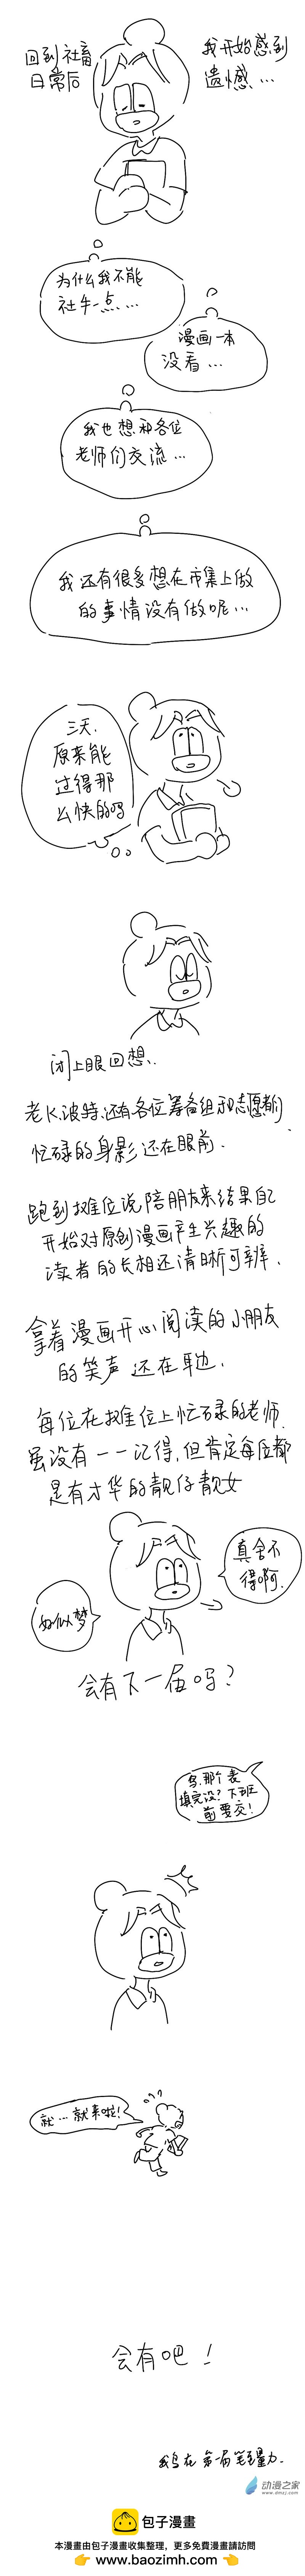 回到社畜
日常后
我开始感到
遗憾…
为什么我不能
社牛一点……
漫画一本
没看…
我也想和各位
老师们交流…
我还有很多想在市集上做
的事情没有做呢…
三天.
原来能
过得那
么快的吗
闭上眼回想..
老K.波特.还有各位筹备组和志愿者们
忙碌的身影还在眼前.
跑到摊位说陪朋友来结果自己
开始对原创漫画产生兴趣的
读者的长相还清晰可辨.
拿着漫画开心阅读的小朋友
的笑声还在耳边.
每位在摊位上忙碌的老师.
虽没有一一记得,但肯定每位都
是有才华的靓仔靓女
真舍不
得啊.
好似梦
会有下一届吗?
乌.那个表
填完没?下班
前要交!
就…就来啦!
会有吧!
动漫之家
www.dmzj.com
包子漫畫
本漫畫由包子漫畫收集整理，更多免費漫畫請訪問
www.baozimh.com